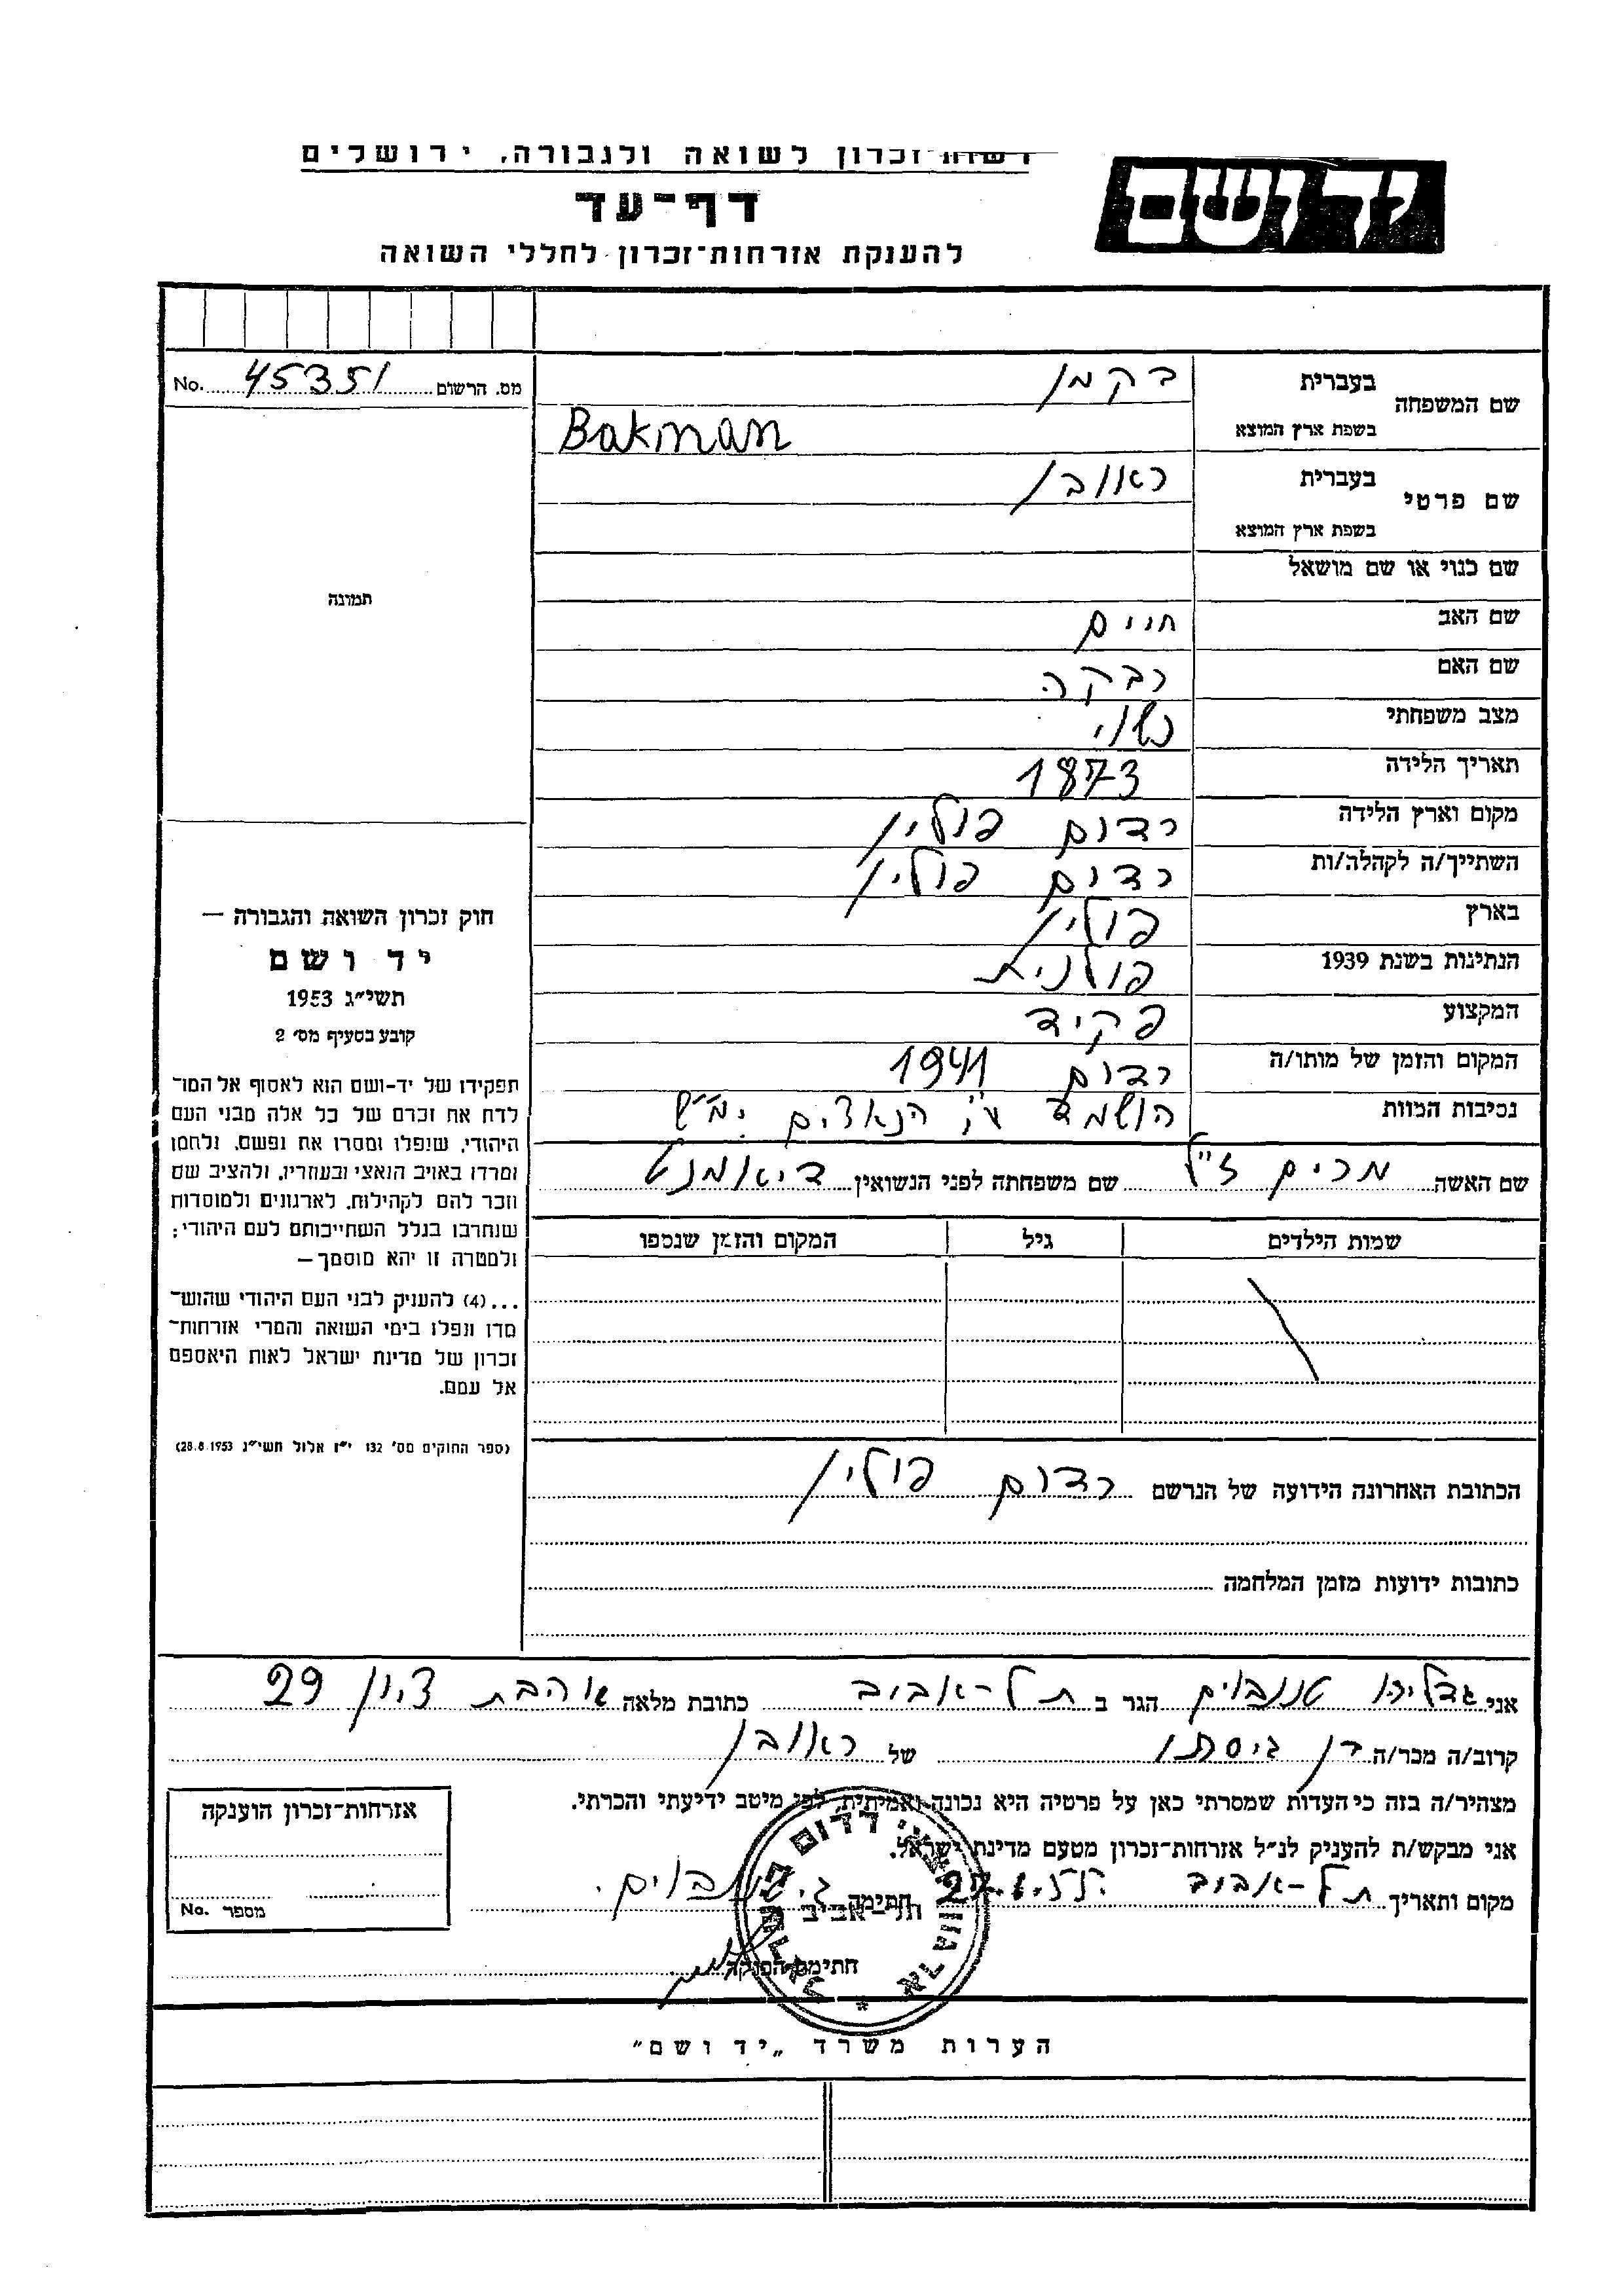 רשות-זכרון לשואה ולגבורה, ירושלים
יד ושם
דף-עד
להענקת אזרחות-זכרון לחללי השואה
מס. הרשום 45351 No.
שם המשפחה בעברית בקמן
בשפת ארץ המוצא Bakman
שם פרטי בעברית ראובן
בשפת ארץ המוצא
שם כנוי או שם מושאל
שם האב חיים
שם האם רבקה
מצב משפחתי נשוי
תאריך הלידה 1873
מקום וארץ הלידה רדום פולין
השתייך/ה לקהלה/ות רדום פולין
בארץ פולין
הנתינות בשנת 1939 פולנית
המקצוע פקיד
המקום והזמן של מותו/ה רדום 1941
נסיבות המוות הושמד ע"י הנאצים ימ"ש
שם האשה מרים ז"ל שם משפחתה לפני הנשואין דיאמנט
שמות הילדים גיל המקום והזמן שנספו
הכתובת האחרונה הידועה של הנרשם רדום פולין
כתובות ידועות מזמן המלחמה
תמונה
חוק זכרון השואה והגבורה —
יד ושם
תשי"ג 1953
קובע בסעיף מס' 2
תפקידו של יד-ושם הוא לאסוף אל המו־
לדת את זכרם של כל אלה מבני העם
היהודי, שנפלו ומסרו את נפשם, נלחמו
ומרדו באויב הנאצי ובעוזריו, ולהציב שם
וזכר להם לקהילות, לארגונים ולמוסדות
שנחרבו בגלל השתייכותם לעם היהודי;
ולמטרה זו יהא מוסמך—
...(4) להעניק לבני העם היהודי שהוש־
מדו ונפלו בימי השואה והמרי אזרחות־
זכרון של מדינת ישראל לאות היאספם
אל עמם.
(ספר החוקים מס' 132 י"ז אלול תשי"ג 28.8.1953)
אני גדליהו טננבוים הגר ב תל-אביב כתובת מלאה אהבת ציון 29
קרוב/ה מכר/ה בן גיסתו של ראובן
מצהיר/ה בזה כי העדות שמסרתי כאן על פרטיה היא נכונה ואמיתית, לפי מיטב ידיעתי והכרתי.
אני מבקש/ת להעניק לנ"ל אזרחות-זכרון מטעם מדינת ישראל.
מקום ותאריך תל-אביב חתימה ג. טננבוים
חתימת הפוקד
תל-אביב
אזרחות-זכרון הוענקה
מספר No.
הערות משרד „יד ושם"